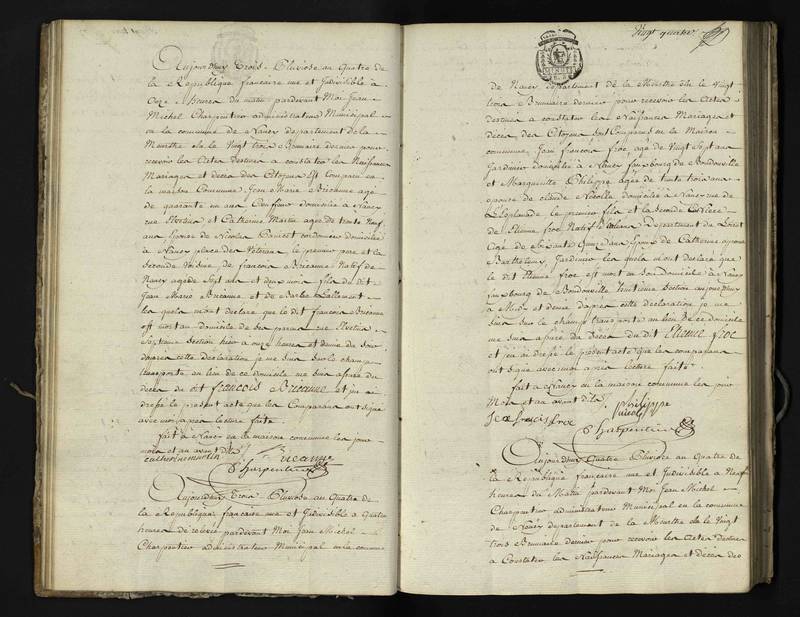 Aujourdhuy Trois Pluviose an Quatre de
la Republique francaise une et Indivisible à
Onze Heures du matin pardevant Moi Jean
Michel Charpentier administrateur Municipal
en la commune de Nancy departement de la
Meurthe elu le Vingt trois Brumaire dernier pour
recevoir les Actes destinés a constater les Naissances
Mariages et décès des Citoyens Est comparu en
la maison Commune Jean Marie Briconne agé
de quarante un ans domicilié a Nancy
rue et Catherine Martin agée de trente neuf
ans Epouse de Nicolas cordonnier domiciliée
a Nancy place des Vétérans le premier pere et la
Seconde Voisine de francois Briconne Natif de
Nancy agé de Sept ans et deux mois fils du dit
Jean Marie Briconne et de Barbe Lallement
les quels mont declaré que le dit francois Briconne
est mort au domicile de ses parens rue
Septieme Section hier a onze heures et demie du soir
daprès cette declaration je me suis sur le champ
transporté au lieu de ce domicile me suis assuré du
décès du dit francois Briconne et jai
dressé le present acte que les Comparans ont signé
avec moi après lecture faite
fait a Nancy en la maison commune les jour
mois et an avant dits
catherine martin
Charpentier
Aujourdhuy Trois Pluviose an Quatre de
la Republique francaise une et Indivisible a Quatre
heures de relevée pardevant Moi Jean Michel
Charpentier administrateur Municipal en la commune
Vingt quatre
de Nancy departement de la Meurthe elu le Vingt
trois Brumaire dernier pour recevoir les Actes
destinés a constater les Naissances Mariages et
décès des Citoyens sont Comparus en la Maison
commune Jean francois froc agé de Vingt Sept ans
Jardinier domicilié a Nancy fauxbourg de Boudonville
et Marguerite Philippe agée de trente trois ans
epouse de claude Nicolle domiciliée a Nancy rue de
L'Esplanade le premier fils et la Seconde
de Etienne froc Natif Departement du Loiret
Agé de Soixante Quinze ans Epoux de Catherine
Barthelemy Jardinier les quels m'ont declaré que
le dit Etienne froc est mort en son Domicile a Nancy
fauxbourg de Boudonville huitieme Section aujourdhuy
a Midy et demie daprès cette declaration je me
suis sur le champ transporté au lieu de ce domicile
me suis assuré du Décès du dit Etienne froc
et jen ai dressé le present acte que les comparans
ont signé avec moi après lecture faite
fait a Nancy en la maison commune les jour
Mois et an avant dits
Philippe
Nicol
Charpentier
Aujourdhuy Quatre Pluviose an Quatre de
la Republique francaise une et Indivisible a Neuf
heures du Matin pardevant Moi Jean Michel
Charpentier administrateur Municipal en la commune
de Nancy departement de la Meurthe elu le Vingt
trois Brumaire dernier pour recevoir les Actes destinés
a Constater les Naissances Mariages et décès des